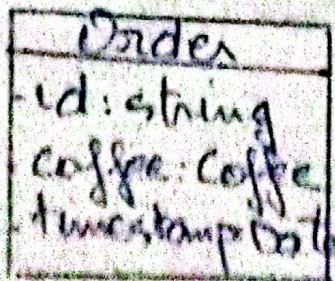 Order
- id: string
- coffee: Coffee
- timestamp